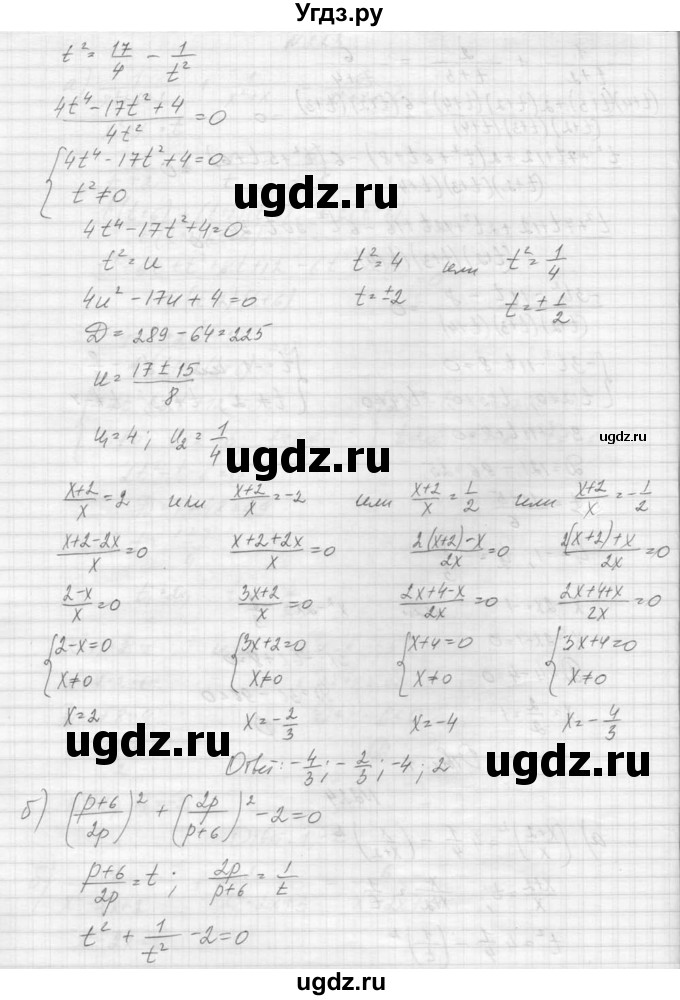 Угдз.ру
t² = 17/4 - 1/t²
(4t⁴ - 17t² + 4)/(4t²) = 0
{4t⁴ - 17t² + 4 = 0
t² ≠ 0
ugdz.ru
4t⁴ - 17t² + 4 = 0
t² = u t² = 4 или t² = 1/4
4u² - 17u + 4 = 0 t = ±2 t = ±1/2
D = 289 - 64 = 225
u = (17 ± 15)/8
u₁ = 4; u₂ = 1/4
ugdz.ru
ugdz.ru
(x+2)/x = 2 или (x+2)/x = -2 или (x+2)/x = 1/2 или (x+2)/x = -1/2
(x+2-2x)/x = 0 (x+2+2x)/x = 0 (2(x+2)-x)/2x = 0 (2(x+2)+x)/2x = 0
(2-x)/x = 0 (3x+2)/x = 0 (2x+4-x)/2x = 0 (2x+4+x)/2x = 0
{2-x = 0 {3x+2 = 0 {x+4 = 0 {3x+4 = 0
x ≠ 0 x ≠ 0 x ≠ 0 x ≠ 0
x = 2 x = -2/3 x = -4 x = -4/3
ugdz.ru
ugdz.ru
Ответ: -4/3; -2/3; -4; 2
б) ((p+6)/2p)² + (2p/(p+6))² - 2 = 0
(p+6)/2p = t; 2p/(p+6) = 1/t
ugdz.ru
t² + 1/t² - 2 = 0
ugdz.ru